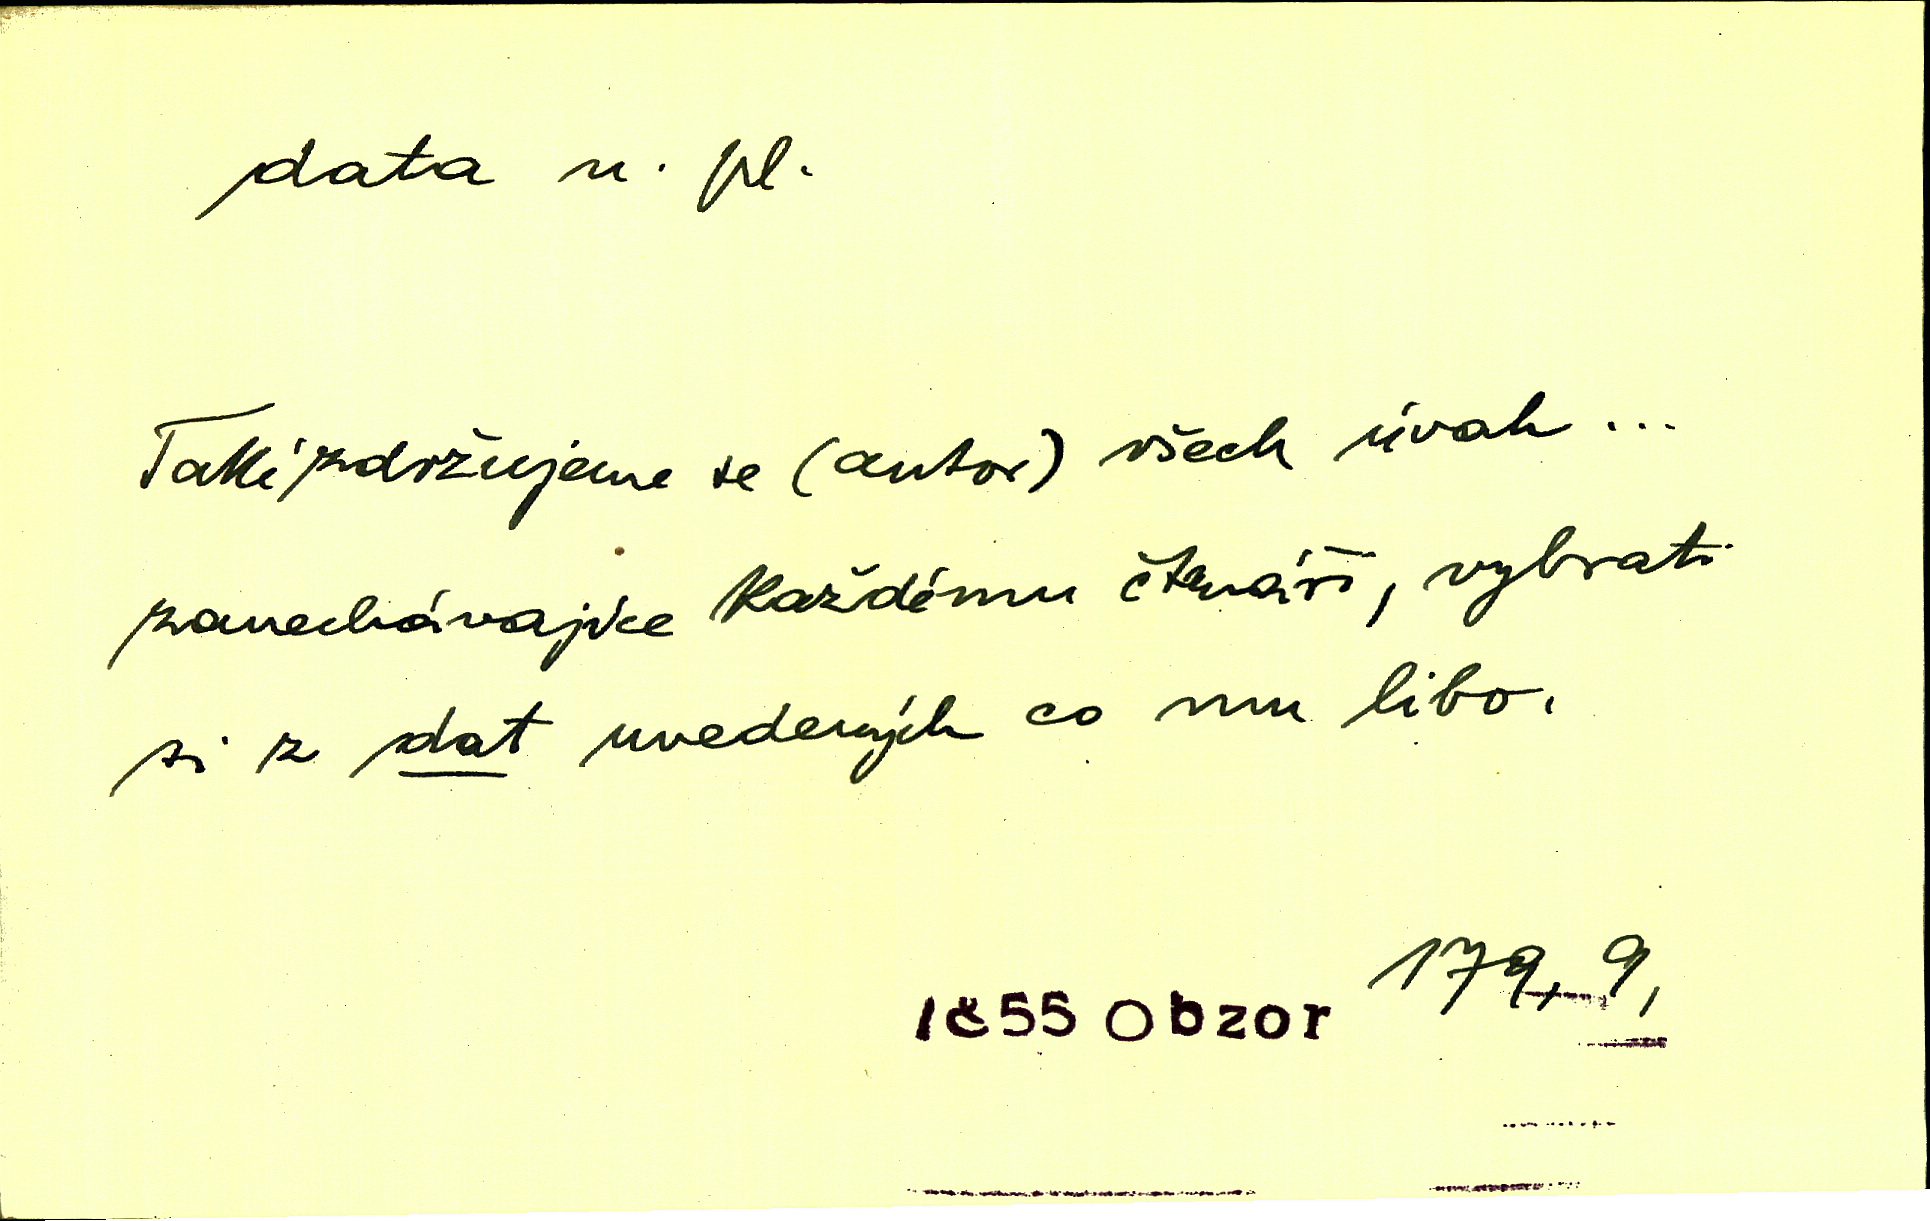 data n. pl.
Takí zdržujeme se (autor) všech úvah ...
zanechávajíce každému čtenáři, vybrati
si z dat uvedených co mu libo.
179, 9,
1855 Obzor